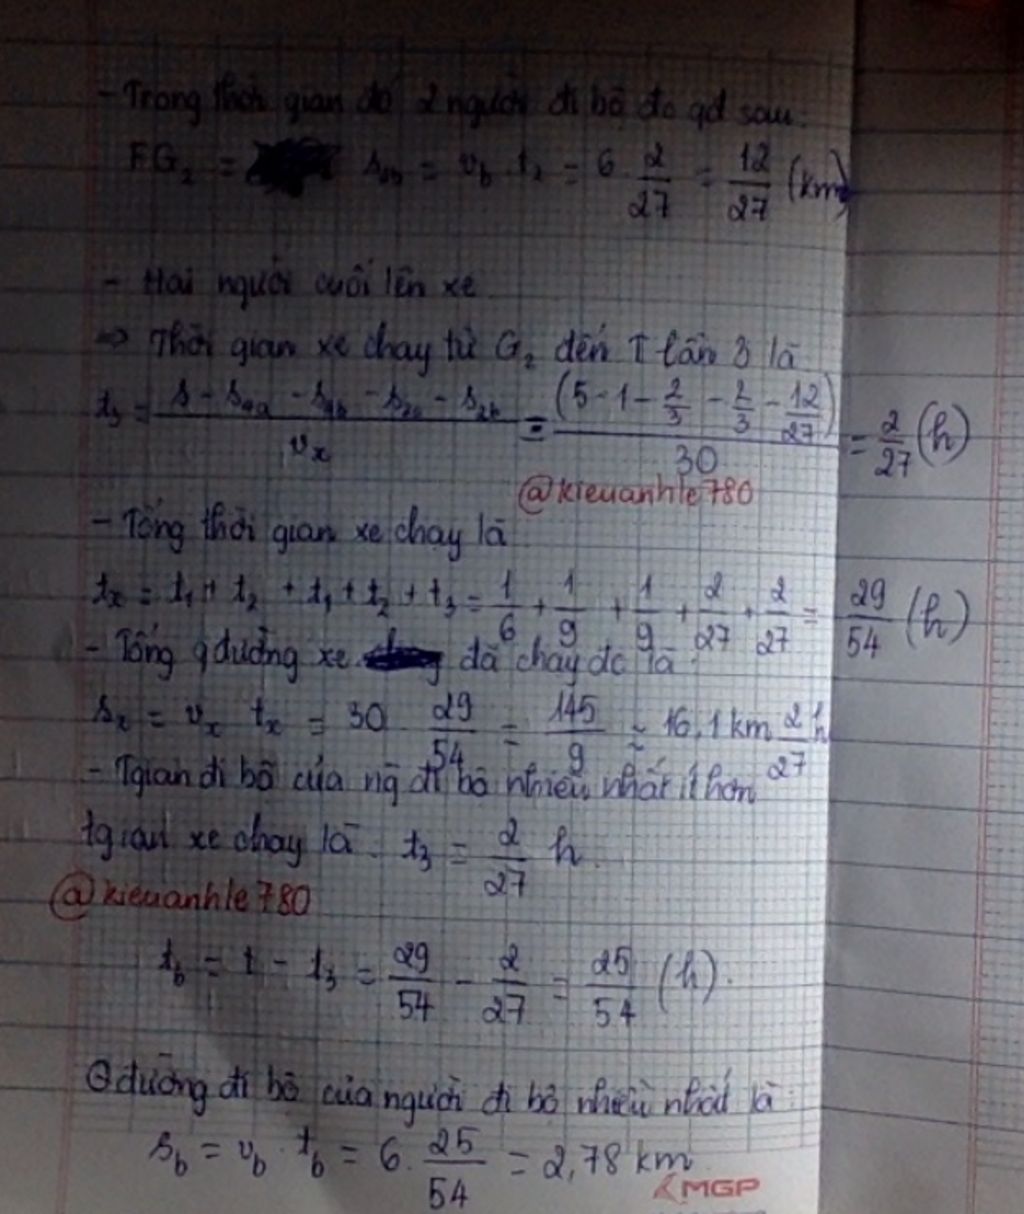 - Trong thời gian đó 2 người đi bộ đc qđ sau:
FG₂ = s₂b = v_b . t₂ = 6 . 2/27 = 12/27 (km)
- Hai người cuối lên xe
=> Thời gian xe chạy từ G₂ đến T lần 3 là
t₃ = (s - s₁a - s₁b - s₂a - s₂b)/v_x = (5 - 1 - 2/3 - 2/3 - 12/27)/30 = 2/27 (h)
@kieuanhle780
- Tổng thời gian xe chạy là
t_x = t₁ + t₂ + t₁ + t₂ + t₃ = 1/6 + 1/9 + 1/9 + 2/27 + 2/27 = 29/54 (h)
- Tổng qđường xe đã chạy đc là
s_x = v_x t_x = 30 . 29/54 = 145/9 ≈ 16,1 km 2/27 h
- Tgian đi bộ của ng đi bộ nhiều nhất ít hơn
tgian xe chạy là t₃ = 2/27 h.
@kieuanhle780
t_b = t - t₃ = 29/54 - 2/27 = 25/54 (h).
Qđường đi bộ của người đi bộ nhiều nhất là
s_b = v_b . t_b = 6 . 25/54 = 2,78 km
MGP